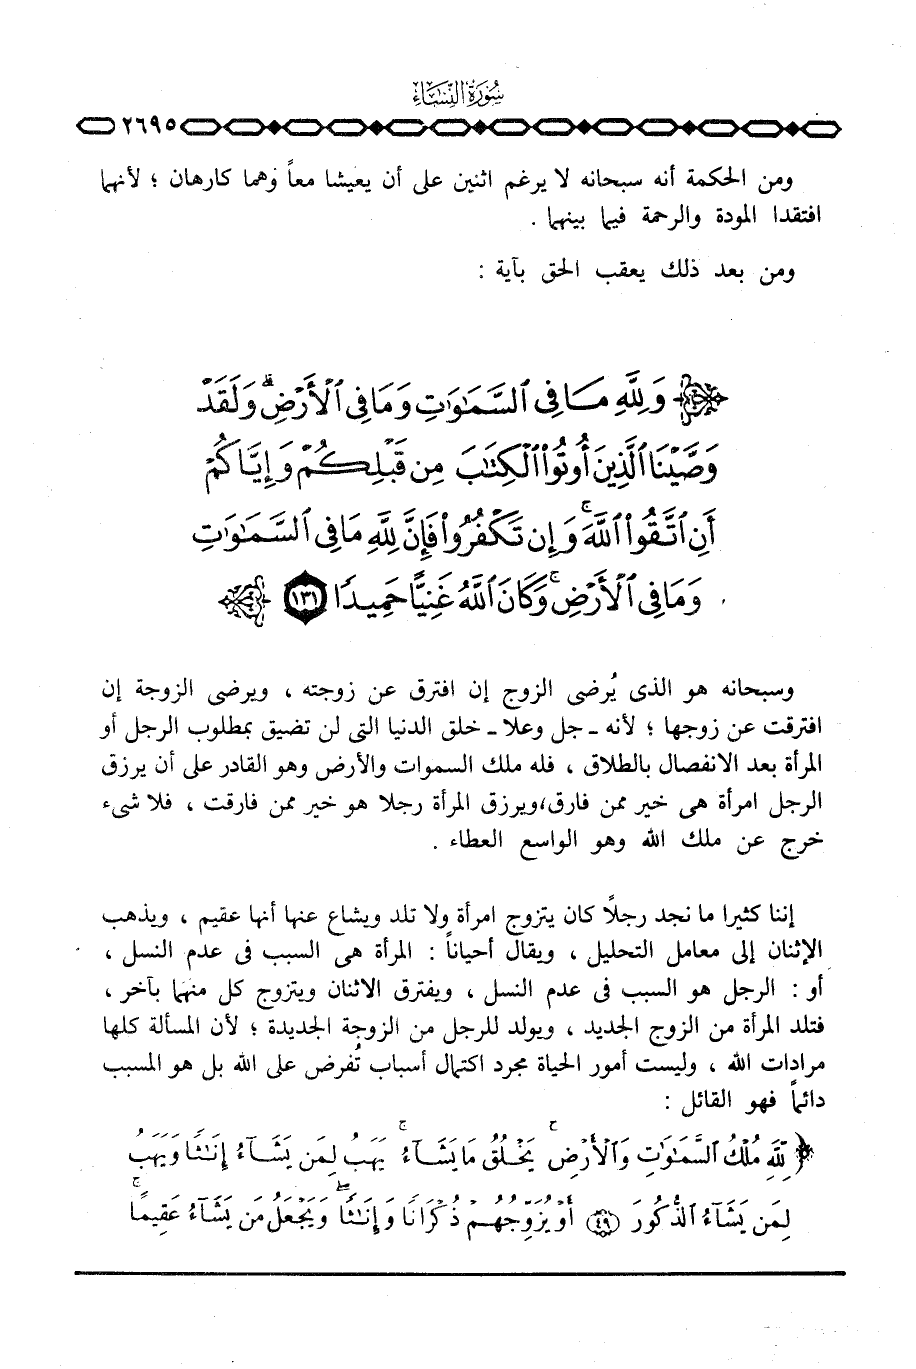 سُورَةُ النِّسَاءِ
٢٦٩٥
ومن الحكمة أنه سبحانه لا يرغم اثنين على أن يعيشا معاً وهما كارهان ؛ لأنهما
افتقدا المودة والرحمة فيما بينهما .
ومن بعد ذلك يعقب الحق بآية :
وَلِلَّهِ مَا فِى ٱلسَّمَٰوَٰتِ وَمَا فِى ٱلْأَرْضِ ۗ وَلَقَدْ
وَصَّيْنَا ٱلَّذِينَ أُوتُوا۟ ٱلْكِتَٰبَ مِن قَبْلِكُمْ وَإِيَّاكُمْ
أَنِ ٱتَّقُوا۟ ٱللَّهَ ۚ وَإِن تَكْفُرُوا۟ فَإِنَّ لِلَّهِ مَا فِى ٱلسَّمَٰوَٰتِ
وَمَا فِى ٱلْأَرْضِ ۚ وَكَانَ ٱللَّهُ غَنِيًّا حَمِيدًا ١٣١
وسبحانه هو الذى يُرضى الزوج إن افترق عن زوجته ، ويرضى الزوجة إن
افترقت عن زوجها ؛ لأنه ـ جل وعلا ـ خلق الدنيا التى لن تضيق بمطلوب الرجل أو
المرأة بعد الانفصال بالطلاق ، فله ملك السموات والأرض وهو القادر على أن يرزق
الرجل امرأة هى خير ممن فارق، ويرزق المرأة رجلا هو خير ممن فارقت ، فلا شىء
خرج عن ملك الله وهو الواسع العطاء .
إننا كثيرا ما نجد رجلاً كان يتزوج امرأة ولا تلد ويشاع عنها أنها عقيم ، ويذهب
الإثنان إلى معامل التحليل ، ويقال أحياناً : المرأة هى السبب فى عدم النسل ،
أو : الرجل هو السبب فى عدم النسل ، ويفترق الاثنان ويتزوج كل منهما بآخر ،
فتلد المرأة من الزوج الجديد ، ويولد للرجل من الزوجة الجديدة ؛ لأن المسألة كلها
مرادات الله ، وليست أمور الحياة مجرد اكتمال أسباب تُفرض على الله بل هو المسبب
دائماً فهو القائل :
﴿ لِّلَّهِ مُلْكُ ٱلسَّمَٰوَٰتِ وَٱلْأَرْضِ ۚ يَخْلُقُ مَا يَشَآءُ ۚ يَهَبُ لِمَن يَشَآءُ إِنَٰثًا وَيَهَبُ
لِمَن يَشَآءُ ٱلذُّكُورَ ٤٩ أَوْ يُزَوِّجُهُمْ ذُكْرَانًا وَإِنَٰثًا ۖ وَيَجْعَلُ مَن يَشَآءُ عَقِيمًا ۚ